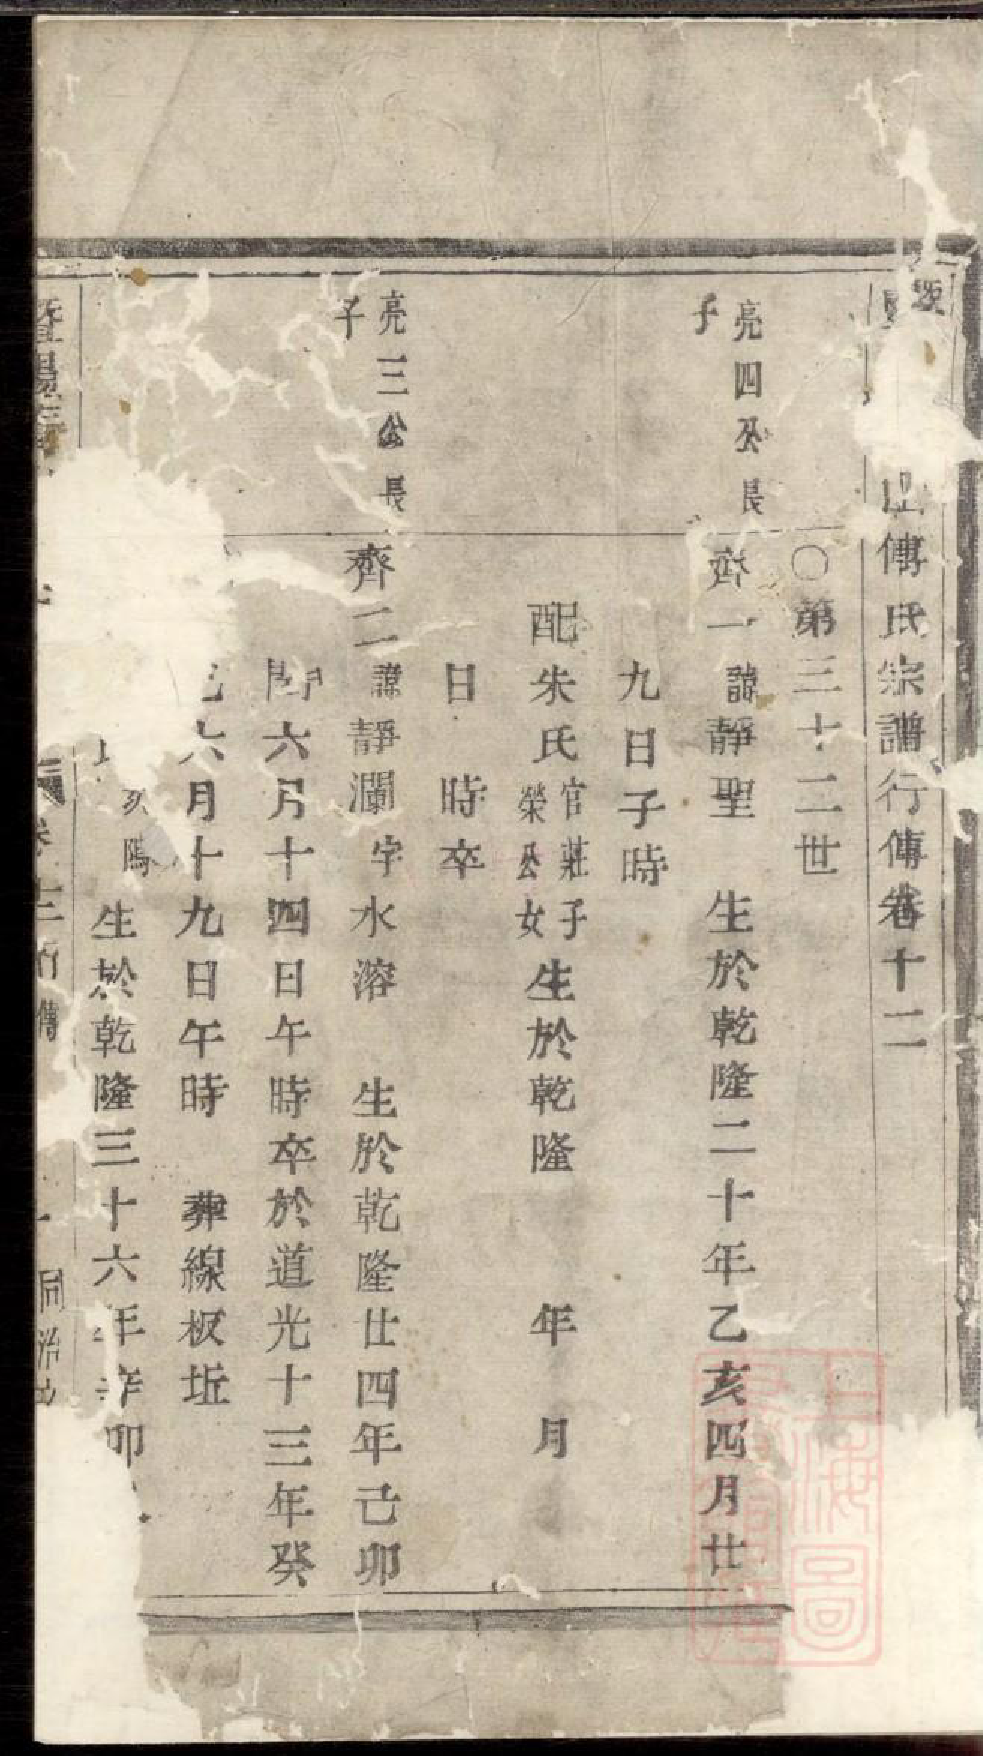 山傅氏宗譜行傳卷十二
〇第三十二世
亮四公長
子
齊一諱靜聖 生於乾隆二十年乙亥四月廿
九日子時
配朱氏官莊子
榮公女生於乾隆 年 月
日 時卒
亮三公長
子
齊二諱靜瀾字水溶 生於乾隆廿四年己卯
閏六月十四日午時卒於道光十三年癸
六月十九日午時 葬線板坵
生於乾隆三十六年辛卯
暨陽
卷十二行傳 一 同治
上海圖